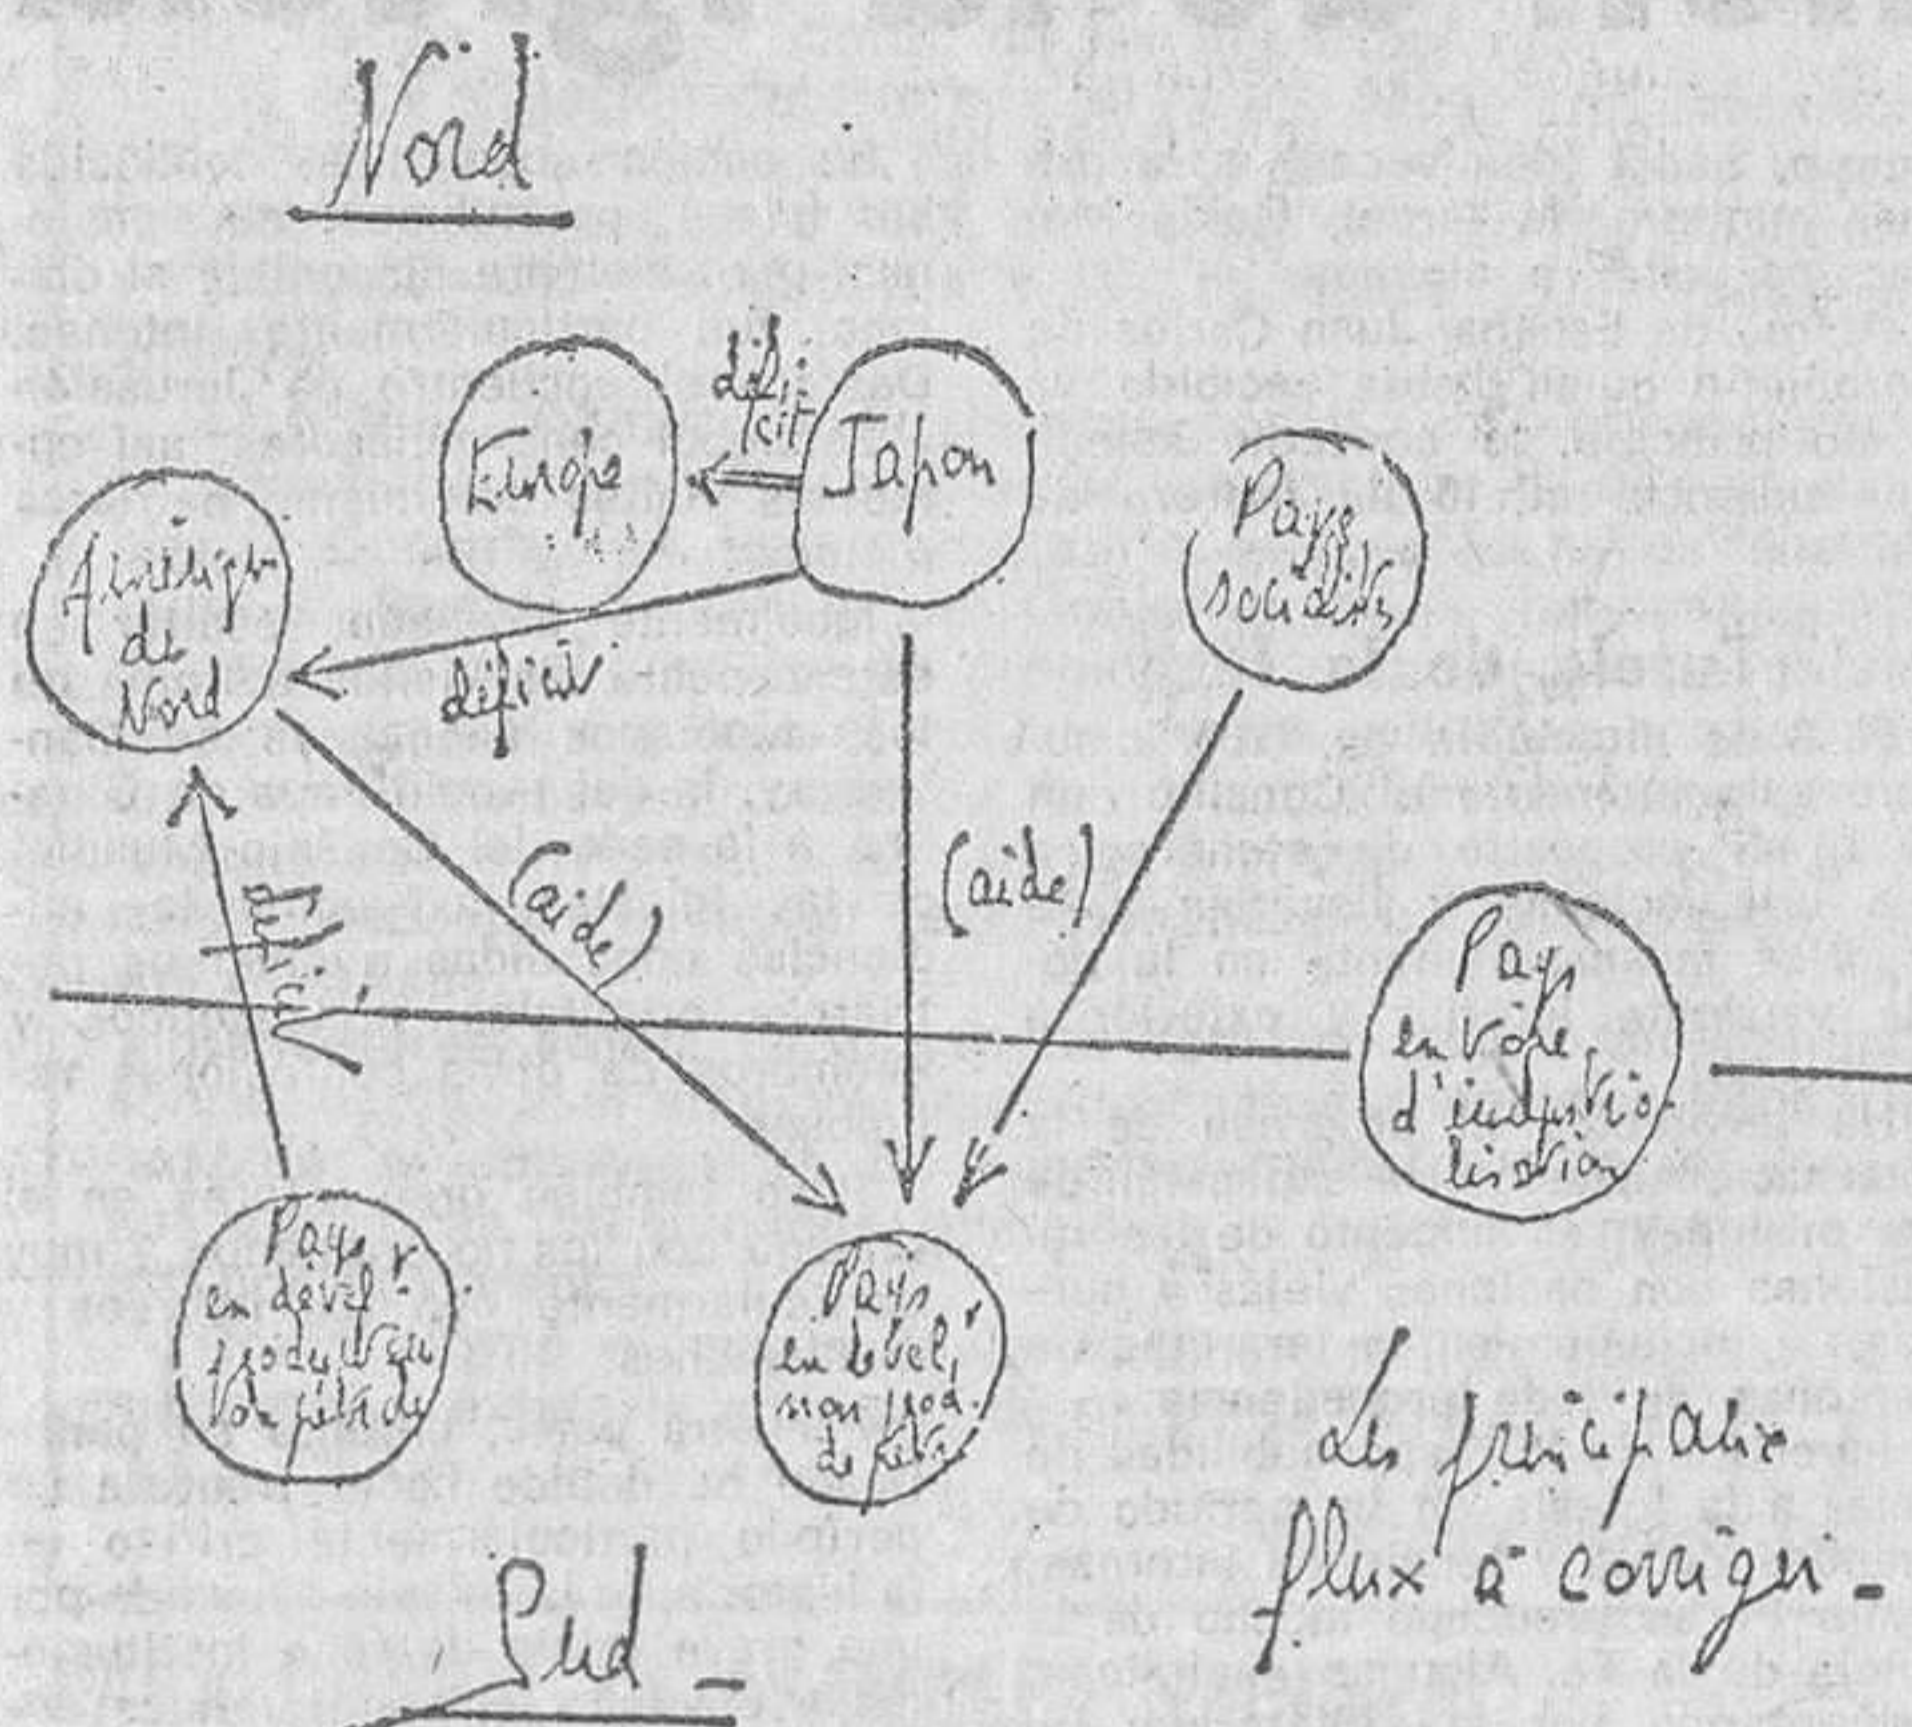 Nord
défi-
cit
Europe
Japon
Pays
socialistes
Amérique
du
Nord
déficit
(aide)
(aide)
déficit
Pays
en voie
d'industria-
lisation
Pays
en dével.r
producteurs
de pétrole
Pays
en dével.r
non prod.
de pétr.
Les principaux
flux à corriger -
Sud -